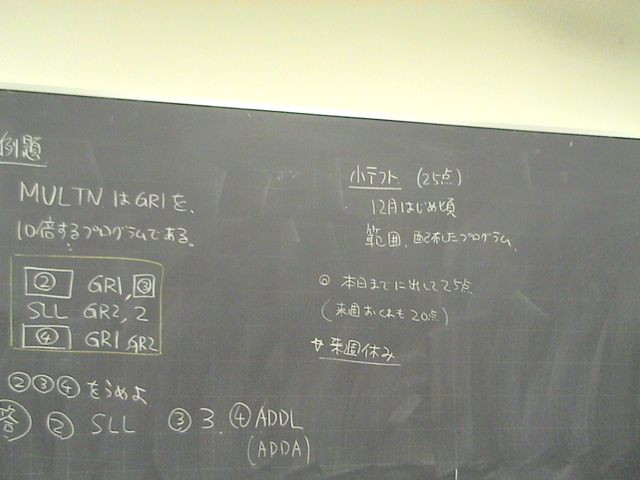 例題
MULTNはGR1を、
10倍するプログラムである。
② GR1, ③
SLL GR2, 2
④ GR1, GR2
②③④をうめよ
答 ② SLL ③ 3 ④ ADDL
(ADDA)
小テスト (25点)
12月はじめ頃
範囲、配布したプログラム
◎ 本日までに出して25点
(来週おくれも20点)
来週休み